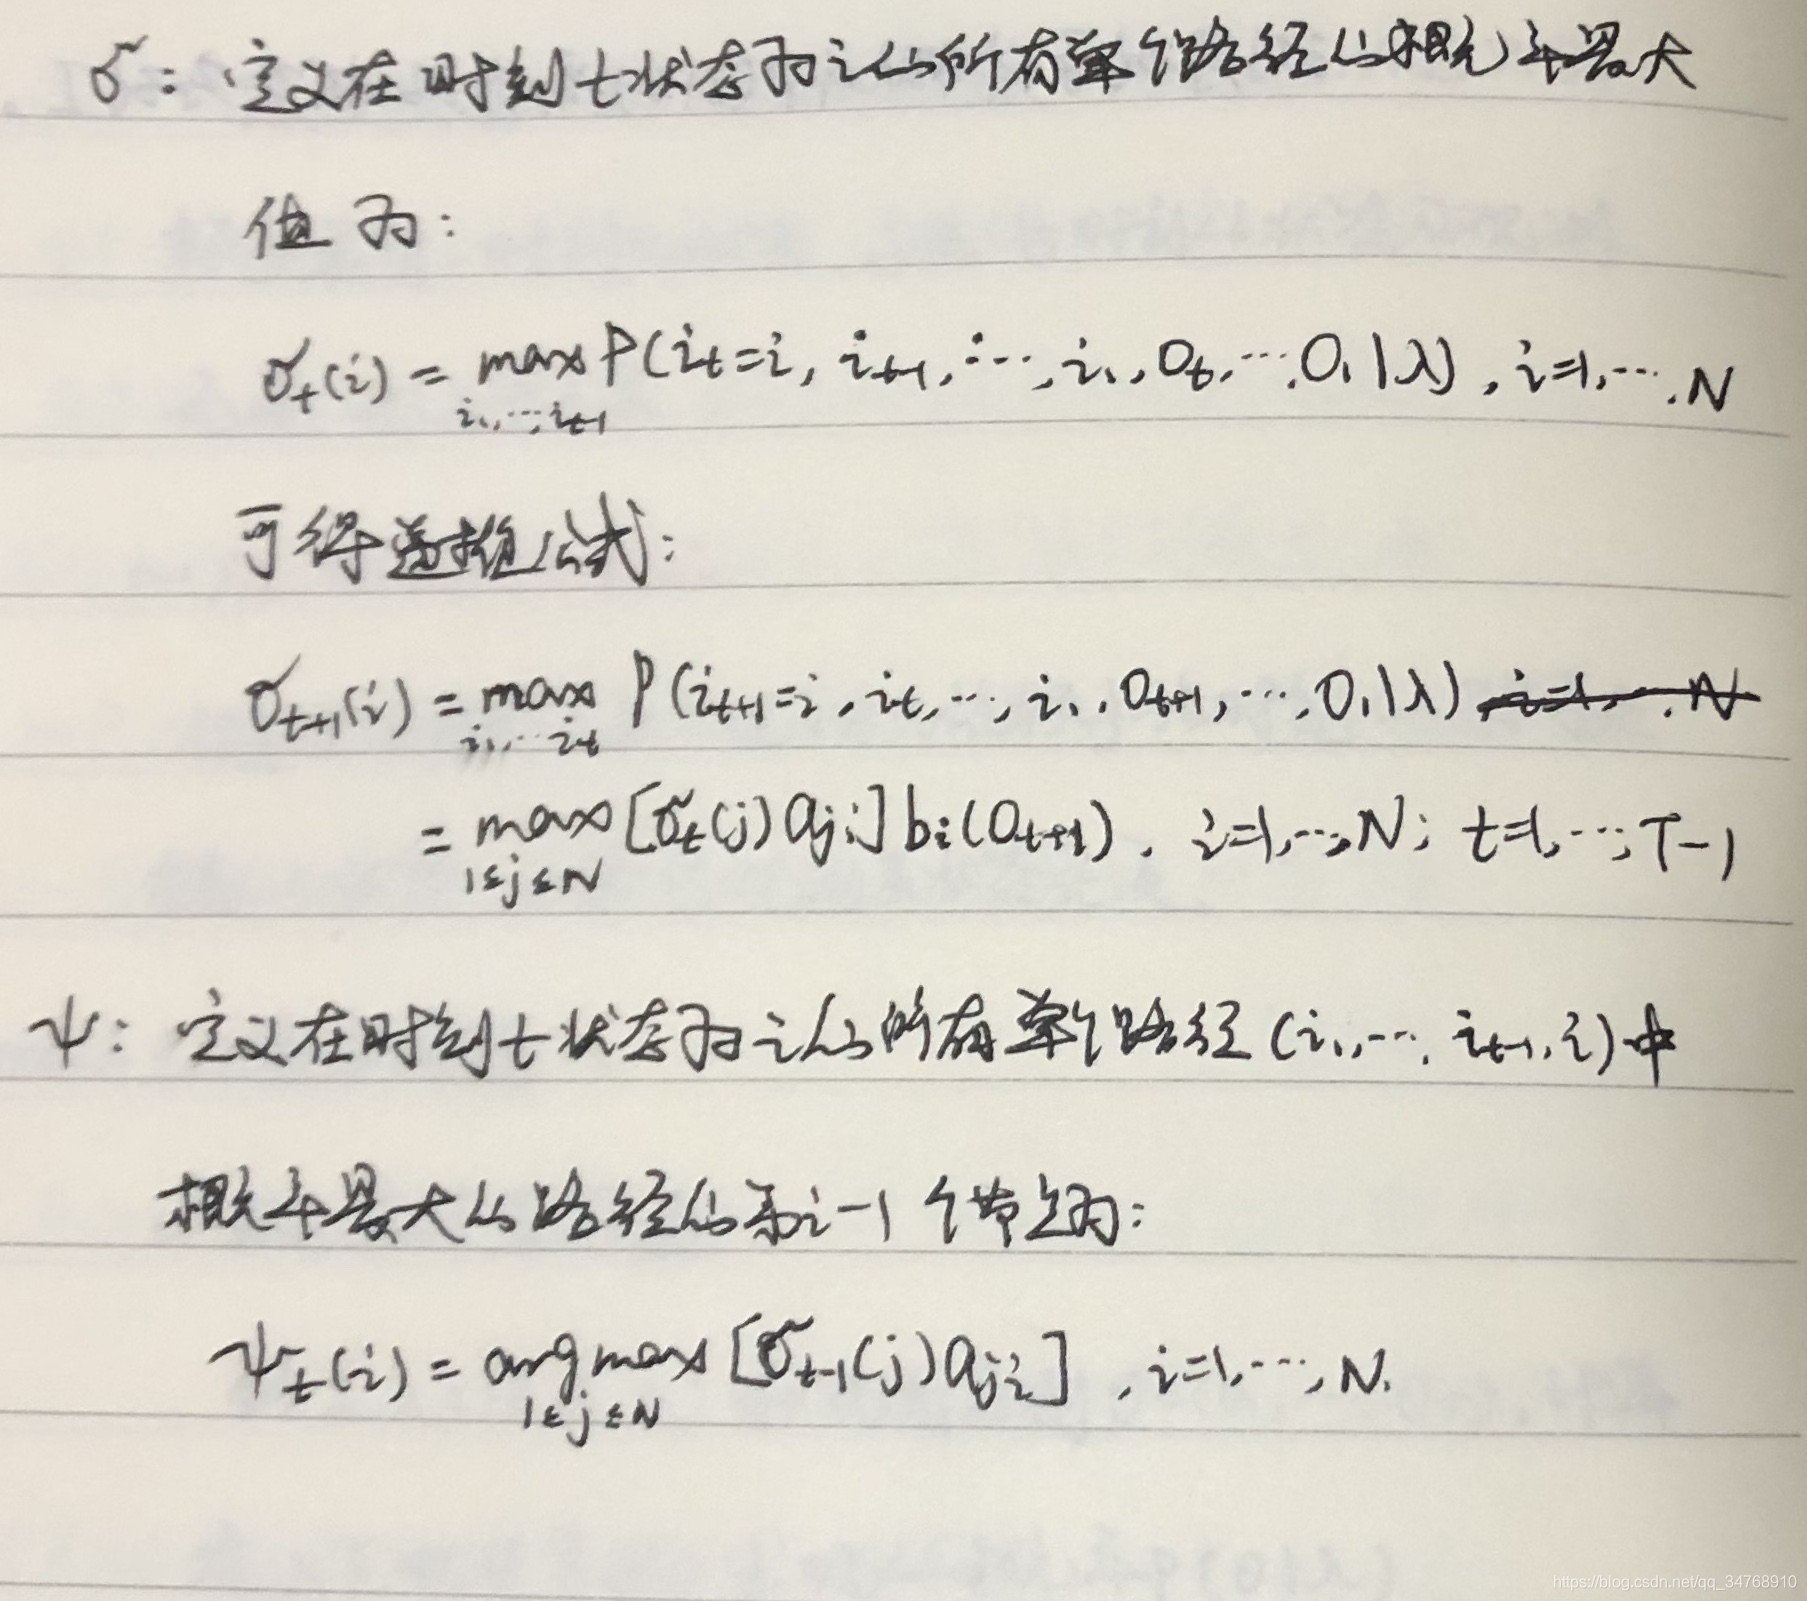 δ: 定义在时刻t状态为i的所有单个路径的概率最大
值为:
δt(i) = max P(it=i, it-1, ..., i1, ot, ..., o1|λ), i=1, ..., N
i1, ..., it-1
可得递推公式:
δt+1(i) = max P(it+1=i, it, ..., i1, ot+1, ..., o1|λ) i=1, ..., N
i1, ... it
= max [δt(j)aji]bi(ot+1), i=1, ..., N; t=1, ..., T-1
1≤j≤N
ψ: 定义在时刻t状态为i的所有单个路径(i1, ..., it-1, i)中
概率最大的路径的第i-1个节点为:
ψt(i) = arg max [δt-1(j)aji], i=1, ..., N.
1≤j≤N
https://blog.csdn.net/qq_34768910